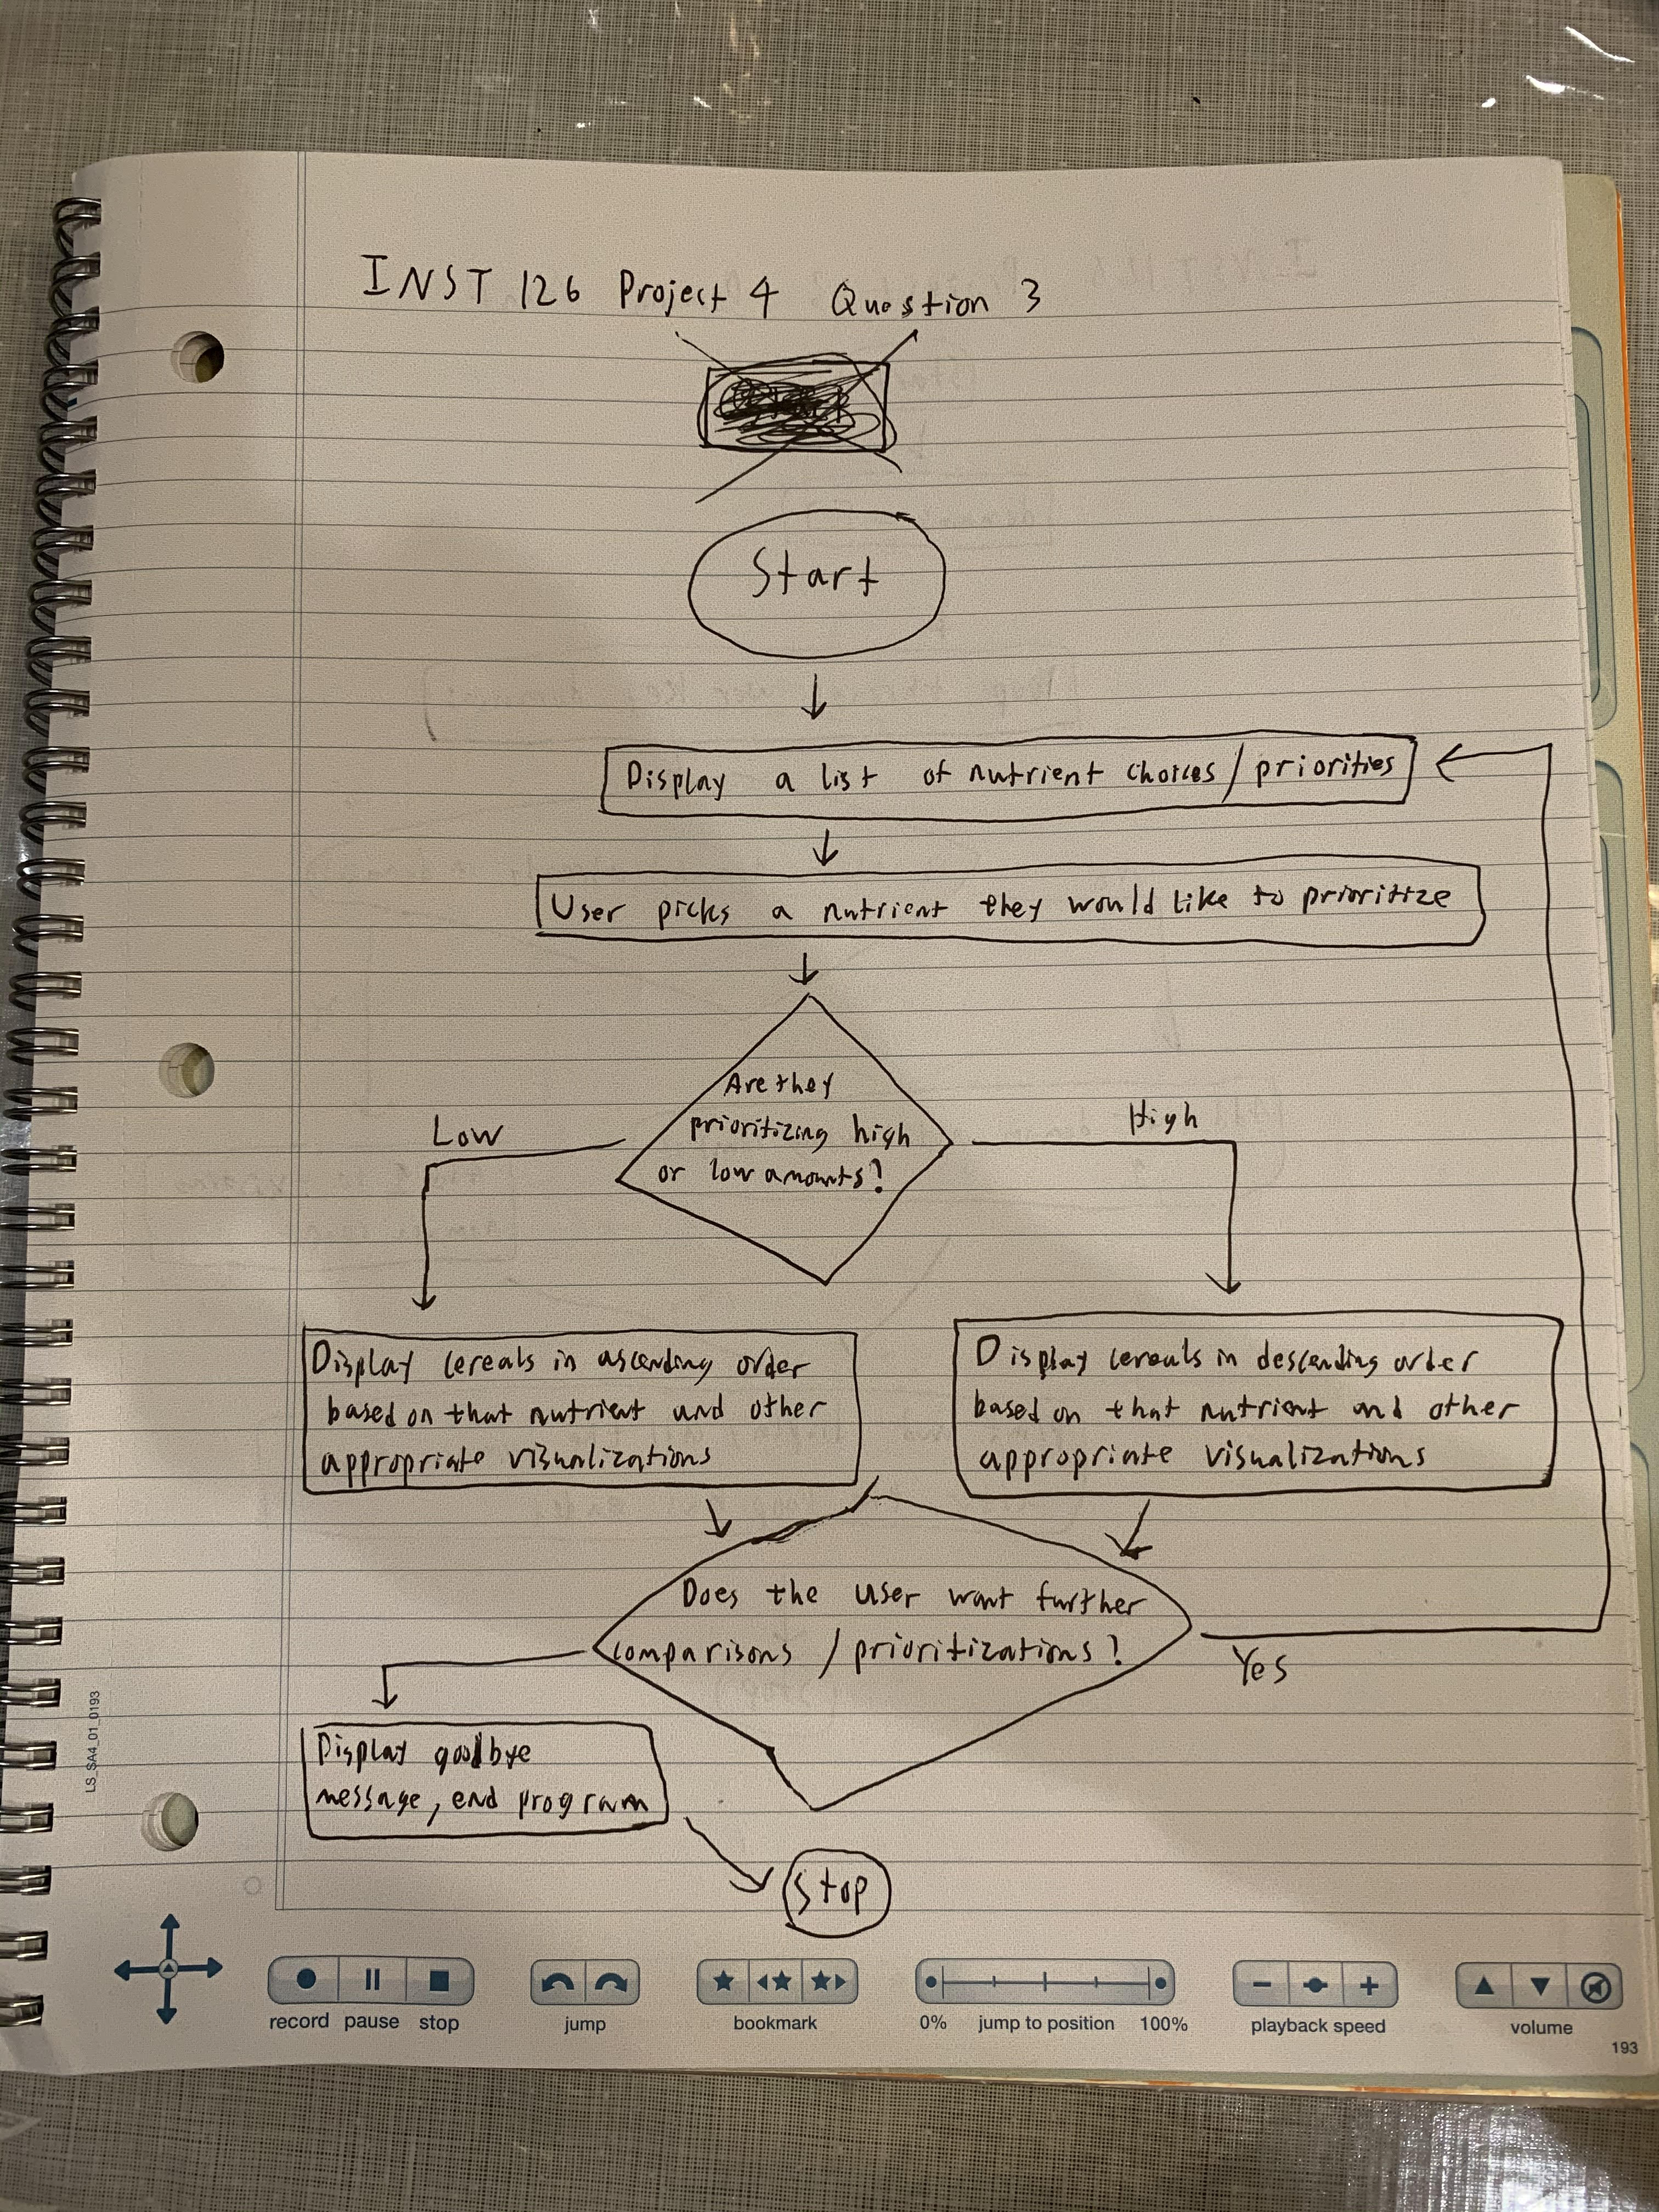 INST 126 Project 4 Question 3
Start
Display a list of nutrient choices / priorities
User picks a nutrient they would like to prioritize
Are they
prioritizing high
or low amounts?
Low
High
Display cereals in ascending order
based on that nutrient and other
appropriate visualizations
Display cereals in descending order
based on that nutrient and other
appropriate visualizations
Does the user want further
comparisons / prioritizations?
Yes
Display goodbye
message, end program
Stop
LS_SA4_01_0193
record pause stop jump bookmark 0% jump to position 100% playback speed volume
193